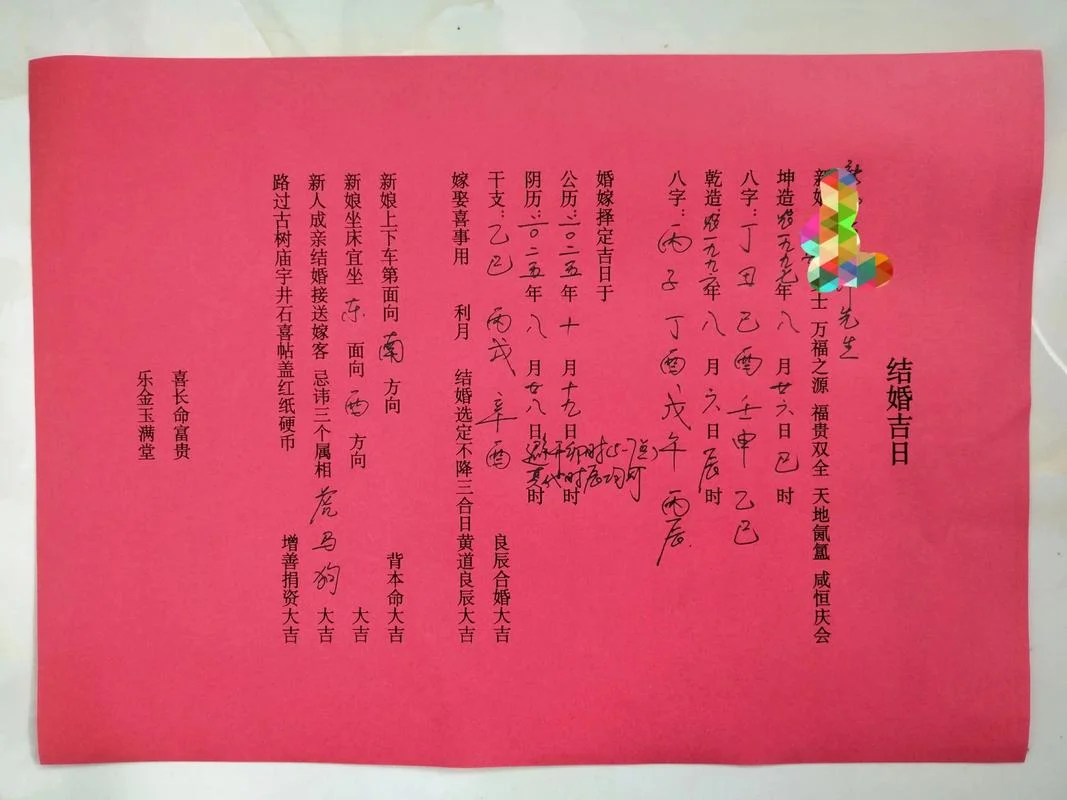 结婚吉日
先生
士 万福之源 福贵双全 天地氤氲 咸恒庆会
坤造 一九九七年八月廿六日巳时
八字：丁丑 己酉 壬申 乙巳
乾造 一九九六年八月六日辰时
八字：丙子 丁酉 戊午 丙辰
婚嫁择定吉日于
公历：二〇二五年十月十九日 卯时(5-7点)时
阴历：二〇二五年八月廿八日 其他时辰均可时
干支：乙巳 丙戌 辛酉 良辰合婚大吉
嫁娶喜事用 利月 结婚选定不降三合日黄道良辰大吉
新娘上下车第面向南方向 背本命大吉
新娘坐床宜坐东面向西方向 大吉
新人成亲结婚接送嫁客 忌讳三个属相虎马狗 大吉
路过古树庙宇井石喜帖盖红纸硬币 增善捐资大吉
喜长命富贵
乐金玉满堂